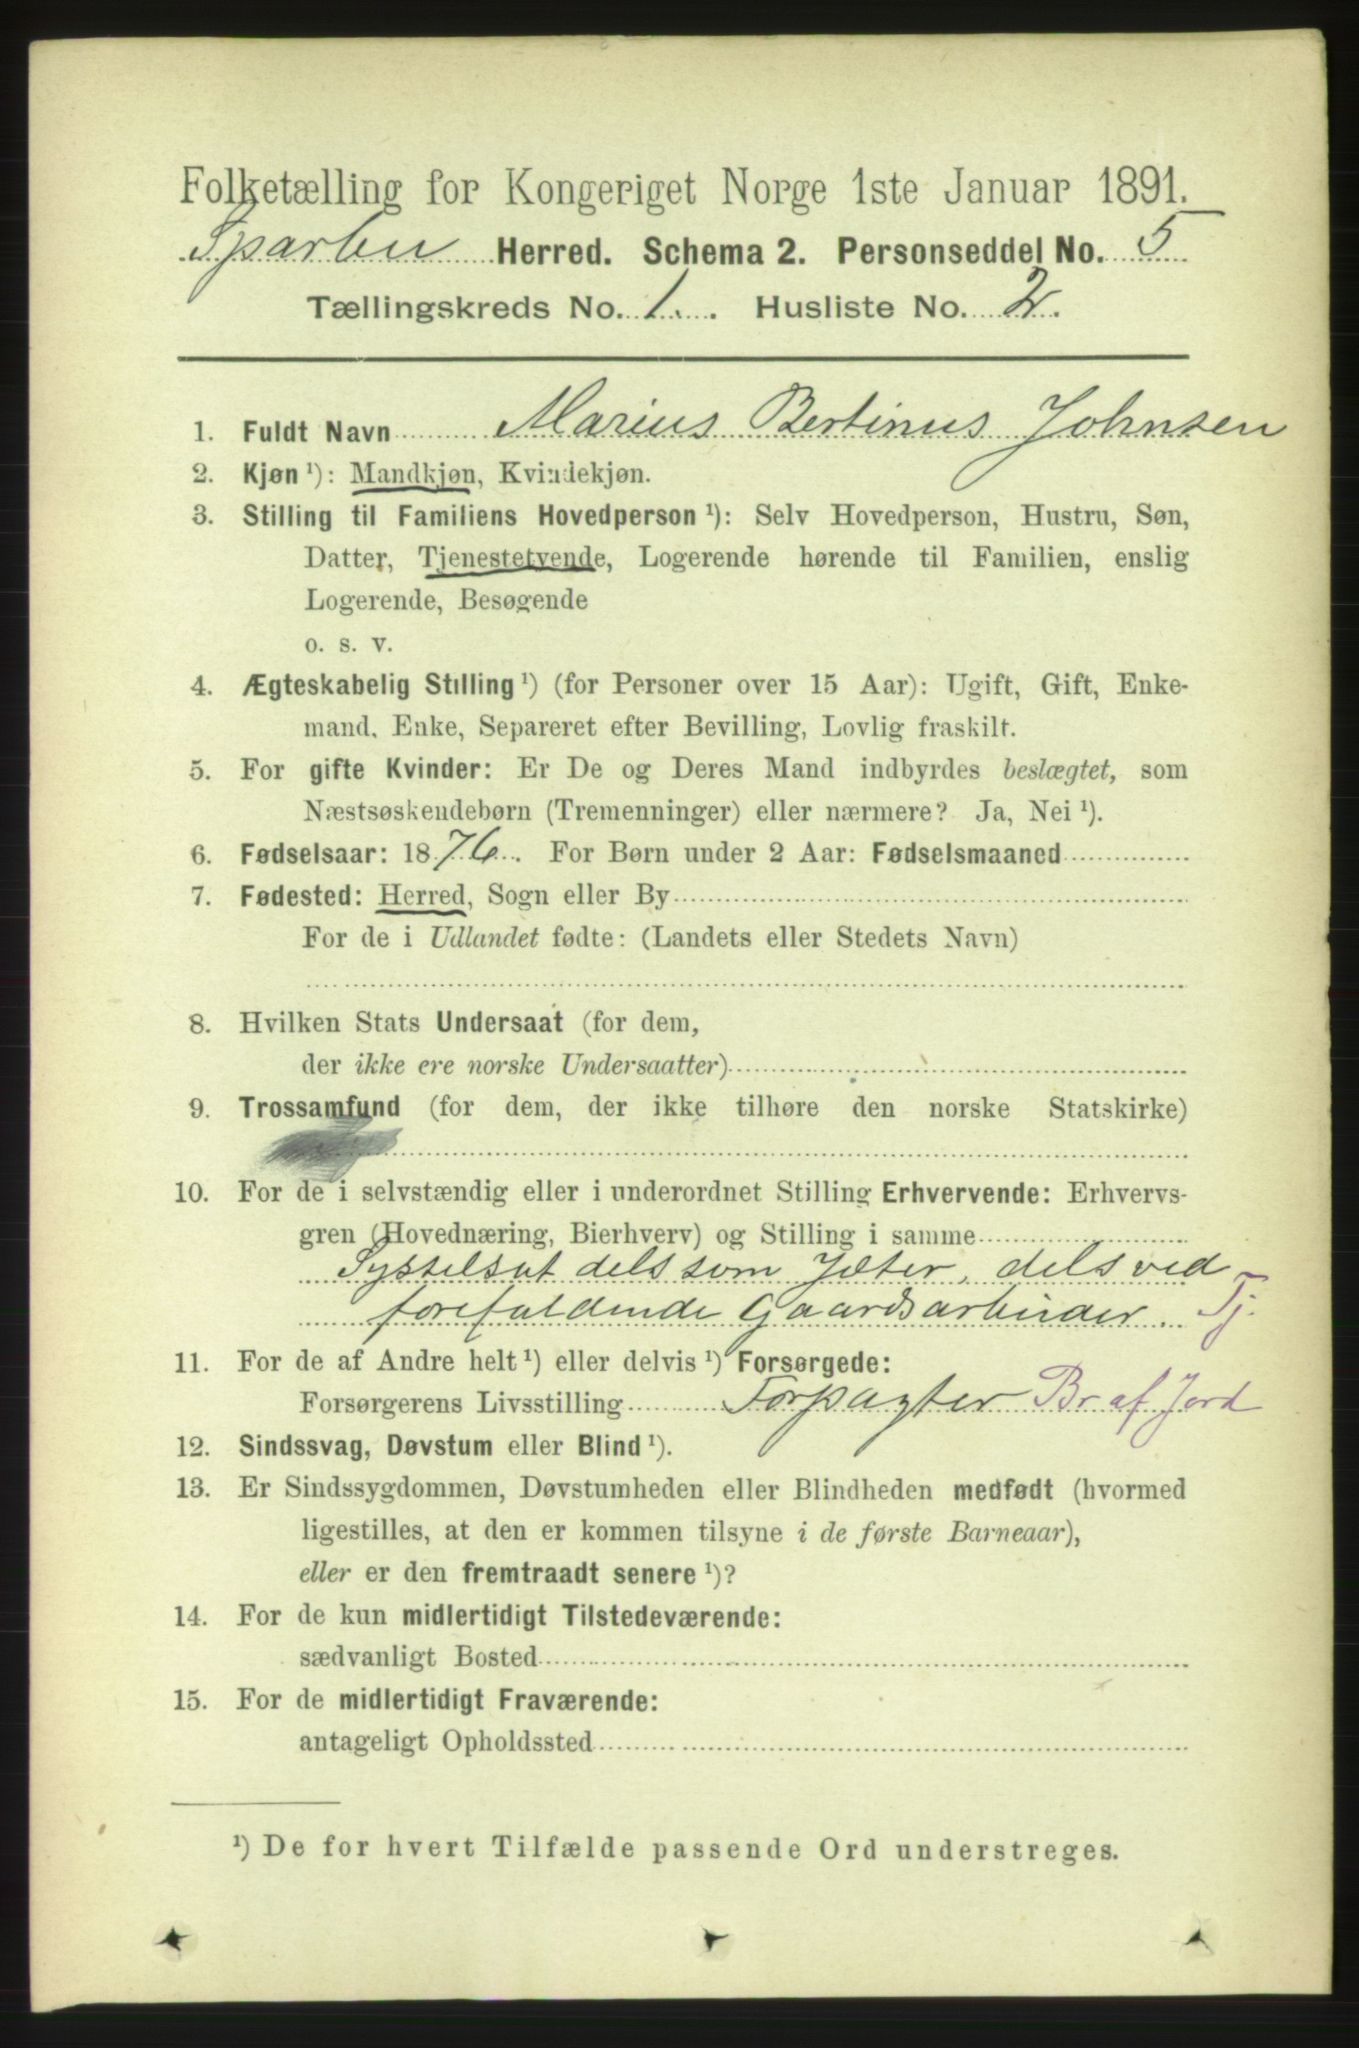 Folketælling for Kongeriget Norge 1ste Januar 1891.
Sparbu Herred. Schema 2. Personseddel No. 5
Tællingskreds No. 1. Husliste No. 2.
1. Fuldt Navn Marius Bertinus Johnsen
2. Kjøn ¹): Mandkjøn, Kvindekjøn.
3. Stilling til Familiens Hovedperson ¹): Selv Hovedperson, Hustru, Søn,
Datter, Tjenestetyende, Logerende hørende til Familien, enslig
Logerende, Besøgende
o. s. v.
4. Ægteskabelig Stilling ¹) (for Personer over 15 Aar): Ugift, Gift, Enke-
mand, Enke, Separeret efter Bevilling, Lovlig fraskilt.
5. For gifte Kvinder: Er De og Deres Mand indbyrdes beslægtet, som
Næstsøskendebørn (Tremenninger) eller nærmere? Ja, Nei ¹).
6. Fødselsaar: 1876. For Børn under 2 Aar: Fødselsmaaned
7. Fødested: Herred, Sogn eller By
For de i Udlandet fødte: (Landets eller Stedets Navn)
8. Hvilken Stats Undersaat (for dem,
der ikke ere norske Undersaatter)
9. Trossamfund (for dem, der ikke tilhøre den norske Statskirke)
10. For de i selvstændig eller i underordnet Stilling Erhvervende: Erhvervs-
gren (Hovednæring, Bierhverv) og Stilling i samme
Sysselsat dels som Jæter, dels ved
forefaldende Gaardsarbeider. Tj.
11. For de af Andre helt ¹) eller delvis ¹) Forsørgede:
Forsørgerens Livsstilling Forpagter Br af Jord
12. Sindssvag, Døvstum eller Blind ¹).
13. Er Sindssygdommen, Døvstumheden eller Blindheden medfødt (hvormed
ligestilles, at den er kommen tilsyne i de første Barneaar),
eller er den fremtraadt senere ¹)?
14. For de kun midlertidigt Tilstedeværende:
sædvanligt Bosted
15. For de midlertidigt Fraværende:
antageligt Opholdssted
¹) De for hvert Tilfælde passende Ord understreges.